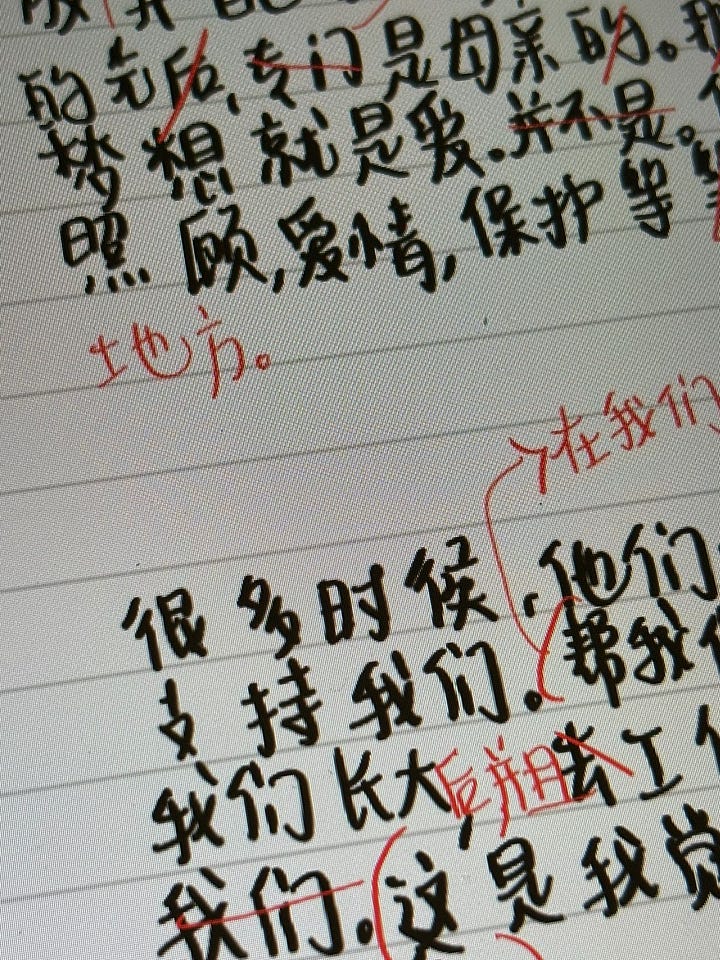 的先后,专门是母亲的。我
梦想就是爱.并不是。
照顾,爱情,保护等等
土地方。
在我们
很多时候.他们
支持我们。帮我
我们长大后并且,去工
我们.这是我觉